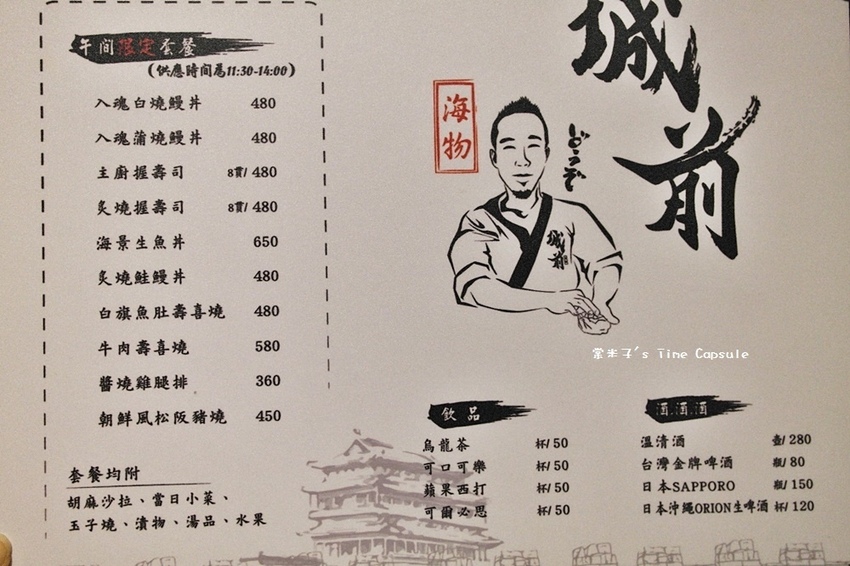 午間限定套餐
(供應時間為11:30-14:00)
入魂白燒鰻丼 480
入魂蒲燒鰻丼 480
主廚握壽司 8貫/ 480
炙燒握壽司 8貫/ 480
海景生魚丼 650
炙燒鮭鰻丼 480
白旗魚肚壽喜燒 480
牛肉壽喜燒 580
醬燒雞腿排 360
朝鮮風松阪豬燒 450
套餐均附
胡麻沙拉、當日小菜、
玉子燒、漬物、湯品、水果
城前
海物
どうぞ
城前
常米子's Time Capsule
飲品
烏龍茶 杯/ 50
可口可樂 杯/ 50
蘋果西打 杯/ 50
可爾必思 杯/ 50
酒.酒.酒
溫清酒 壺/ 280
台灣金牌啤酒 瓶/ 80
日本SAPPORO 瓶/ 150
日本沖繩ORION生啤酒 杯/ 120